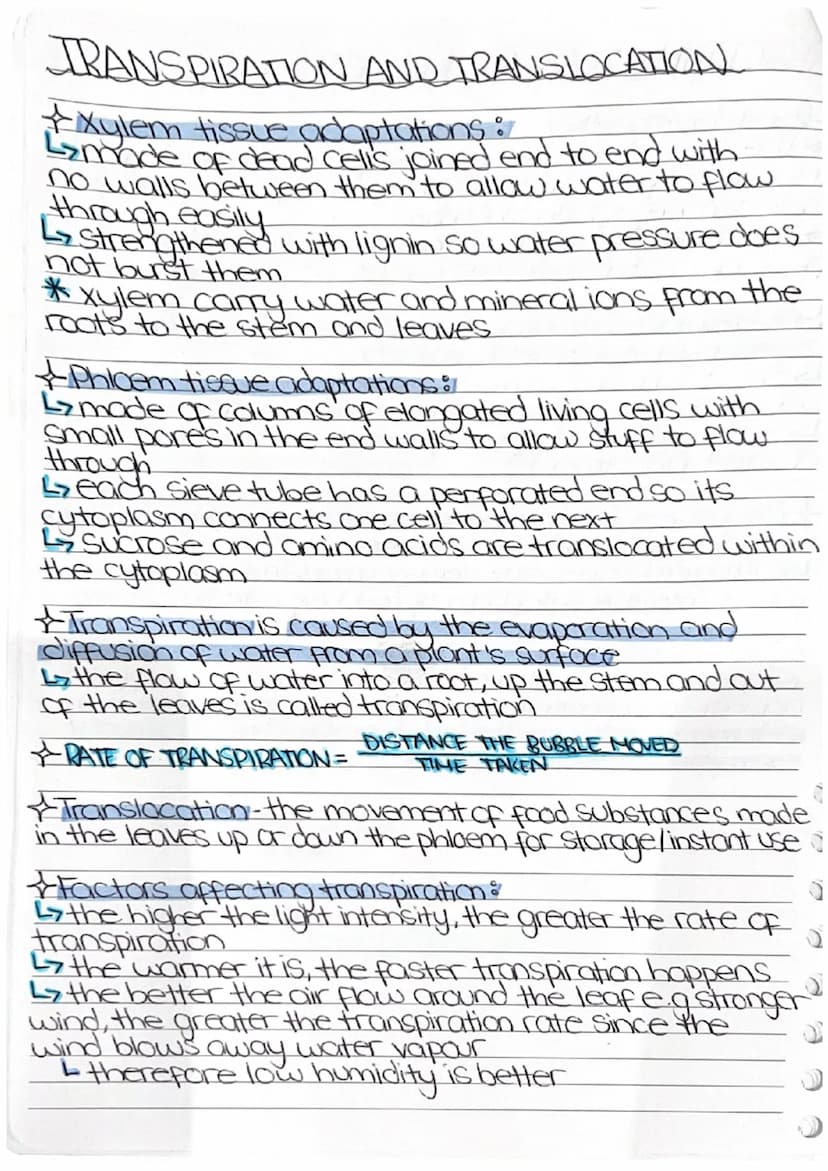 TRANSPIRATION AND TRANSLOCATION
Xylem tissue adaptations:
made of dead cells joined end to end with
no walls between them to allow water to flow
through easily
strengthened with lignin so water pressure does
not burst them
* xylem carry water and mineral ions from the
roots to the stem and leaves
Phloem tissue adaptations:
made of columns of elongated living cells with
small pores in the end walls to allow stuff to flow
through
each sieve tube has a perforated end so its
cytoplasm connects one cell to the next
sucrose and amino acids are translocated within
the cytoplasm
Transpiration is caused by the evaporation and
diffusion of water from a plant's surface
the flow of water into a root, up the stem and out
of the leaves is called transpiration
RATE OF TRANSPIRATION = DISTANCE THE BUBBLE MOVED
TIME TAKEN
Translocation - the movement of food substances made
in the leaves up or down the phloem for storage/instant use
Factors affecting transpiration:
the higher the light intensity, the greater the rate of
transpiration
the warmer it is, the faster transpiration happens
the better the air flow around the leaf e.g stronger
wind, the greater the transpiration rate since the
wind blows away water vapour
therefore low humidity is better